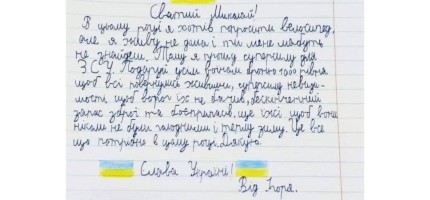 Святий Миколай!
В цьому році я хотів попросити велосипед,
але я живу не дома і ти мене мабуть
не знайдеш. Тому я прошу суперсилу для
ЗСУ. Подаруй усім воїнам броню 1000 рівня
щоб всі повернулися живими, суперсилу невиди-
мости щоб ворог їх не бачив, безкінечний
запас зброї та боєприпасів, ще їжі щоб вони
ніколи не були голодними і теплу зиму. Це все
що потрібно в цьому році. Дякую.
Слава Україні!
Від Ігоря.